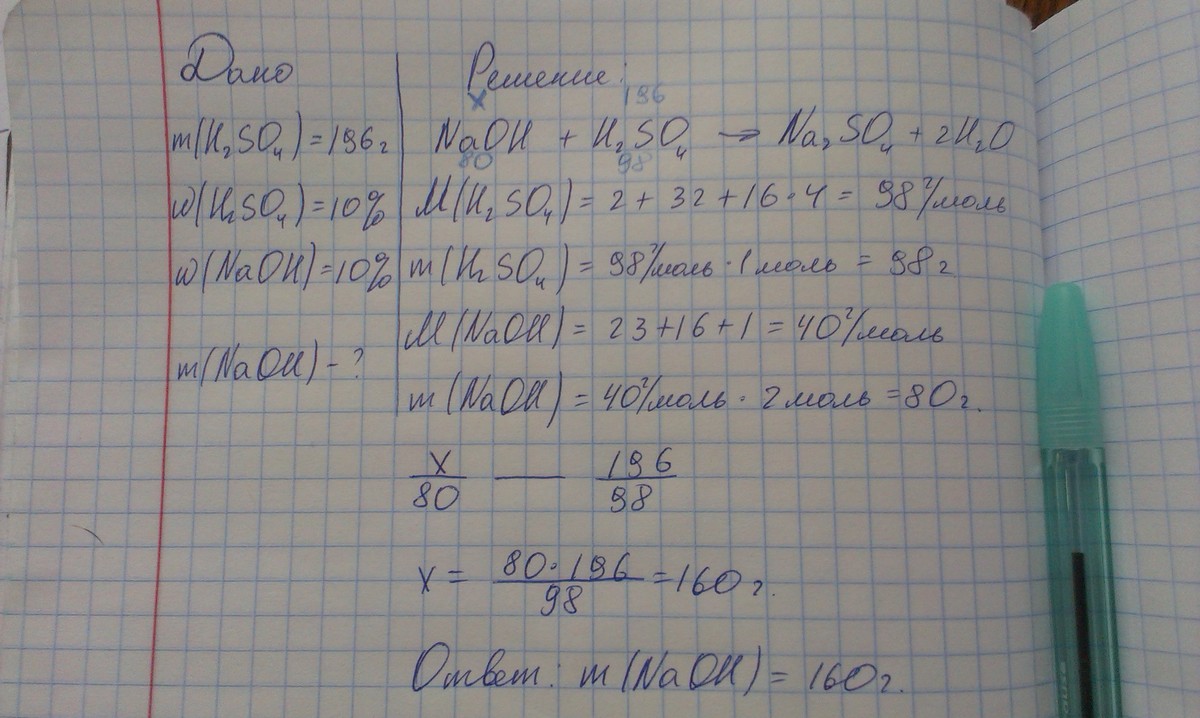 Дано
m(H₂SO₄)=196г
w(H₂SO₄)=10%
w(NaOH)=10%
m(NaOH) - ?
Решение:
x 196
NaOH + H₂SO₄ → Na₂SO₄ + 2H₂O
80 98
M(H₂SO₄) = 2 + 32 + 16 · 4 = 98 г/моль
m(H₂SO₄) = 98 г/моль · 1 моль = 98 г
M(NaOH) = 23 + 16 + 1 = 40 г/моль
m(NaOH) = 40 г/моль · 2 моль = 80 г.
x/80 — 196/98
x = 80 · 196/98 = 160 г.
Ответ: m(NaOH) = 160 г.